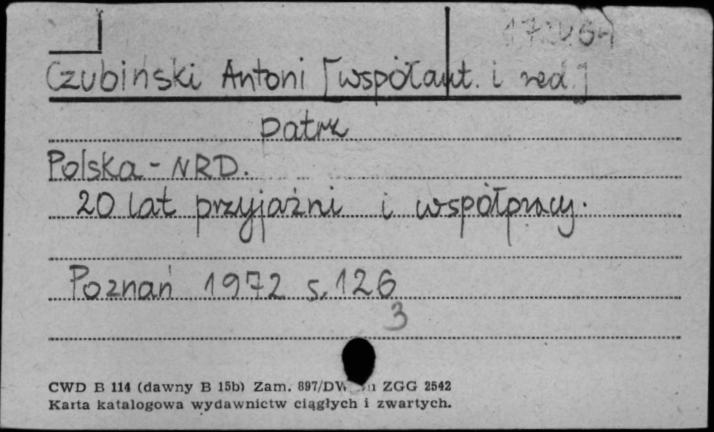 Czubiński Antoni [współaut. i red.]
patrz
Polska - NRD.
20 lat przyjaźni i współpracy.
Poznań 1972 s. 126
3
CWD B 114 (dawny B 15b) Zam. 897/DW ZGG 2542
Karta katalogowa wydawnictw ciągłych i zwartych.